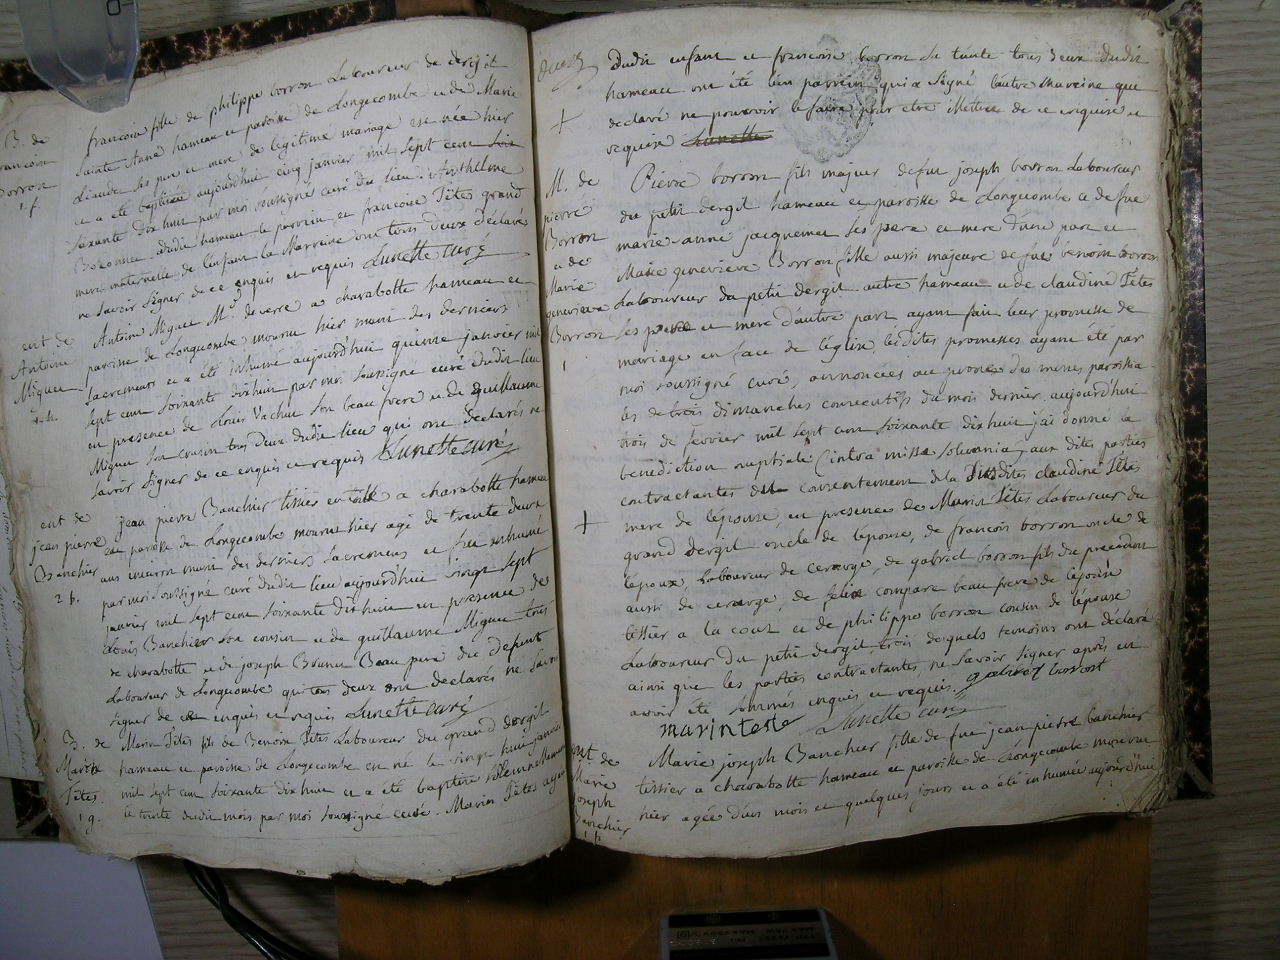 B. de
francoise
Borron
1. f.
francoise fille de philippe borron Laboureur de dergit et
Sainte Anne hameau et paroisse de Longecombe et de Marie
Claudine ses pere et mere de legitime mariage est née hier
et a été baptisée aujourd'huy cinq janvier mil sept cent
soixante dix huit par moi soussigné curé du lieu. Anthelme
dudit hameau le parrein et francoise Tétes grand
mere maternelle de l'enfant la Marreine ont tous deux déclarés
ne savoir signer de ce enquis et requis Lunette curé
ent de
Antoine
Miguet
Antoine Miguet M.d de verre a charabotte hameau et
paroisse de Longecombe mourut hier muni des derniers
sacremens et a été inhumé aujourd'hui quinze janvier mil
sept cent soixante dixhuit par moi soussigné curé dudit lieu
en presence de Louis Vachat son beau frere et de guillaume
Miguet son cousin tous deux dudit lieu qui ont declarés ne
savoir signer de ce enquis et requis Lunette curé
ent de
jean pierre
Banchier
jean pierre Banchier tissier en toille a charabotte hameau
et paroisse de Longecombe mourut hier agé de trente deux
ans environ muni des derniers sacremens et fut inhumé
par moi soussigné curé dudit lieu aujourd'hui vingt sept
janvier mil sept cent soixante dixhuit en presence de
Louis Banchier son cousin et de guillaume Miguet tous
de charabotte et de joseph Brunet Beau pere du defunt
Laboureur de Longecombe qui tous deux ont declarés ne savoir
signer de ce enquis et requis Lunette curé
B. de
Marin
Tétes
1 g.
Marin Tétes fils de Benoit Tétes Laboureur du grand dergit
hameau et paroisse de Longecombe est né le vingt huit janvier
mil sept cent soixante dix huit et a été baptisé solemnellement
le trente dudit mois par moi soussigné curé. Marin Tétes ayeul
dudit enfant et francoise borron sa tante tous deux dudit
hameau ont été l'un parrein qui a signé l'autre marreine qui
a declaré ne pouvoir le faire pour etre illettrée de ce enquise et
requise Lunette
M. de
pierre
Borron
et de
Marie
genevieve
Borron
1
Pierre borron fils majeur de feu joseph borron Laboureur
du petit dergit hameau et paroisse de Longecombe et de feue
marie anne jacquemet ses pere et mere d'une part et
Marie genevieve Borron fille aussi majeure de feu benoit borron
Laboureur du petit dergit autre hameau et de claudine Tétes
ses pere et mere d'autre part ayant fait leur promesse de
mariage en face de l'église, lesdites promesses ayant été par
moi soussigné curé, annoncées au prone des messes paroissia-
les de trois dimanches consecutifs du mois dernier, aujourd'hui
trois de fevrier mil sept cent soixante dix huit j'ai donné la
benediction nuptiale (intra missa solemnia) aux dites parties
contractantes du consentement de la susdite claudine Tétes
mere de l'épouse, en presence de Marin Tétes Laboureur du
grand dergit oncle de l'épouse, de francois borron oncle de
l'epoux, Laboureur de cerarge, de gabriel borron fils du precedent
aussi de cerarge, de felix compare beau frere de l'epoux
tessier a la coux et de philippe borron cousin de l'épouse
Laboureur du petit dergit trois desquels temoins ont déclaré
ainsi que les parties contractantes, ne savoir signer après en
avoir été sommés enquis et requis. gabriel borron
marin tete Lunette curé
ent de
Marie
Joseph
Banchier
1 p.
Marie joseph Banchier fille de feu jean pierre banchier
tessier a charabotte hameau et paroisse de Longecombe mourut
hier agée d'un mois et quelques jours et a été inhumée aujourd'hui